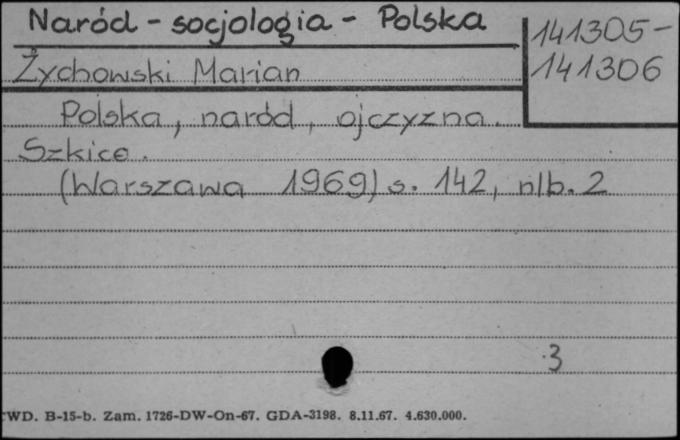 Naród - socjologia - Polska
141305-
141306
Żychowski Marian
Polska, naród, ojczyzna.
Szkice.
(Warszawa 1969) s. 142, nlb. 2
3
WD. B-15-b. Zam. 1726-DW-On-67. GDA-3198. 8.11.67. 4.630.000.